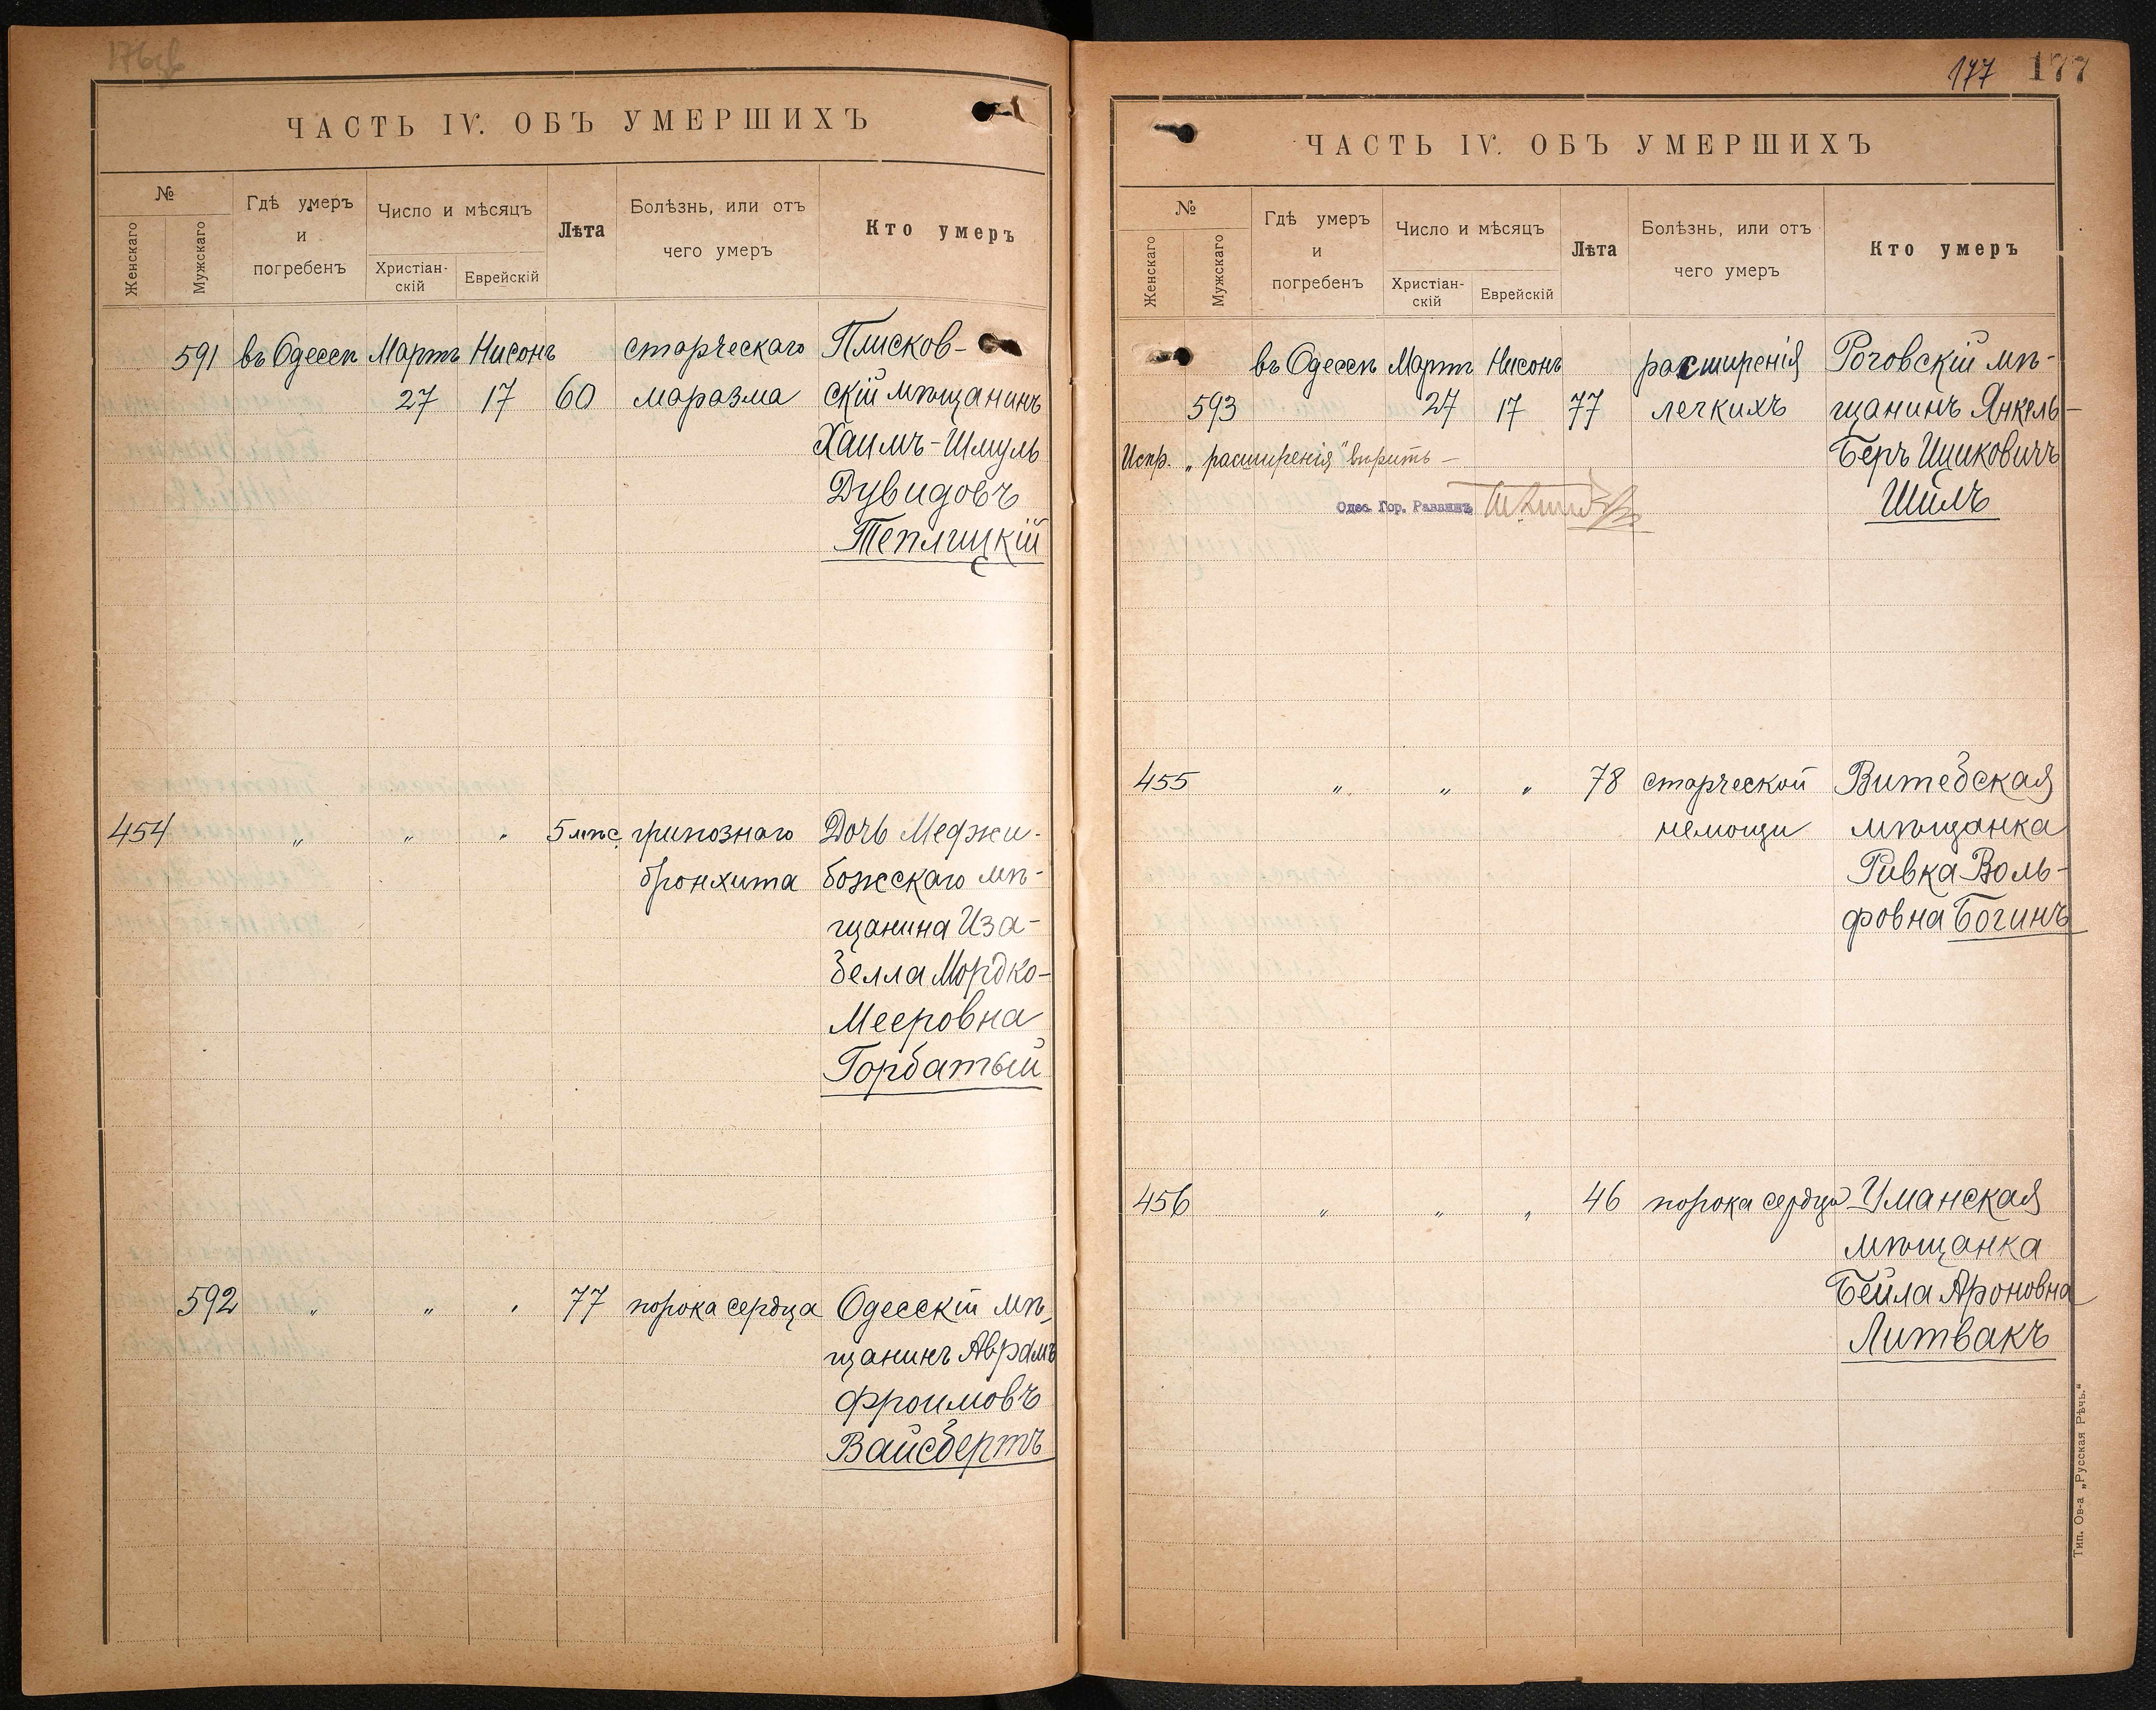 176об
ЧАСТЬ IV. ОБЪ УМЕРШИХЪ
№
Женскаго
Мужскаго
Гдѣ умеръ
и
погребенъ
Число и мѣсяцъ
Христіан-
скій
Еврейскій
Лѣта
Болѣзнь, или отъ
чего умеръ
Кто умеръ
591 въ Одессѣ Мартъ Нисонъ старческаго Плисков-
27 17 60 маразма скій мѣщанинъ
Хаимъ-Шмуль
Дувидовъ
Теплицкій
454 „ „ „ 5 мѣс. грипознаго Дочь Меджи-
бронхита божскаго мѣ-
щанина Иза-
белла Мордко-
Мееровна
Горбатый
592 „ „ „ 77 порока сердца Одесскій мѣ-
щанинъ Аврамъ
Фроимовъ
Вайсбертъ
177 177
ЧАСТЬ IV. ОБЪ УМЕРШИХЪ
№
Женскаго
Мужскаго
Гдѣ умеръ
и
погребенъ
Число и мѣсяцъ
Христіан-
скій
Еврейскій
Лѣта
Болѣзнь, или отъ
чего умеръ
Кто умеръ
въ Одессѣ Мартъ Нисонъ расширенія Роговскій мѣ-
593 27 17 77 легкихъ щанинъ Янкель-
Испр. „расширенія" вѣрить — Беръ Ицковичъ
Одес. Гор. Раввинъ Шилъ
455 „ „ „ 78 старческой Витебская
немощи мѣщанка
Ривка Воль-
фовна Богинъ
456 „ „ „ 46 порока сердца Уманская
мѣщанка
Бейла Ароновна
Литвакъ
Тип. Ов-а „Русская Рѣчь."